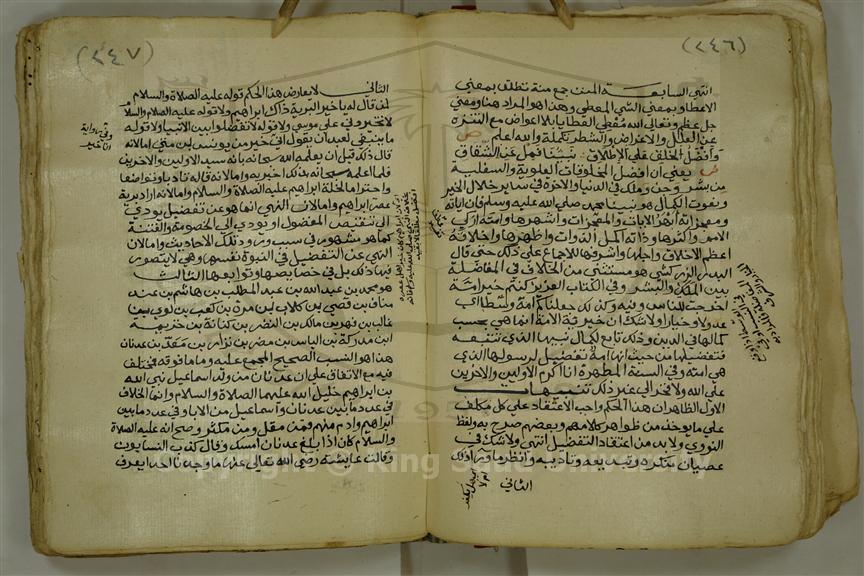 (٢٤٦)
انتهى السابعة المنن جمع منة تطلق بمعنى
الاعطا وبمعنى الشي المعطى وهذا هو المراد هنا ومعنى
جل عظم وتعالى الله معطي العطايا بلا اعواض مع التنزه
عن العلل والاعراض والشطر تكملة والله اعلم ص
وافضل الخلق على الاطلاق نبينا فمل عن الشقاق
ش يعني ان افضل المخلوقات العلوية والسفلية
من بشر وجن وملك في الدنيا والاخرة في ساير خلال الخير
ونعوت الكمال هو نبينا محمد صلى الله عليه وسلم فان اياته
ومعجزاته ابهر الايات والمعجزات واشهرها وامته ازكى
الامم واكثرها وذاته اكمل الذوات واطهرها واخلاقه
اعظم الاخلاق واجلها واشرفها للاجماع على ذلك حتى قال
البدر الزركشي هو مستثنى من الخلاف في المفاضلة
بين الملك والبشر وفي الكتاب العزيز كنتم خير امة
اخرجت للناس وفيه وكذلك جعلناكم امة وسطا اي
عدولا وخيارا ولا شك ان خيرية الامة انما هي بحسب
كمالها في الدين وذلك تابع لكمال نبيها الذي تتبعه
فتفضيلها من حيث انها امة تفضيل لرسولها الذي
هي امته وفي السنة المطهرة انا اكرم الاولين والاخرين
على الله ولا فخر الى غير ذلك تنبيهات
الاول الظاهر ان هذا الحكم واجب الاعتقاد على كل مكلف
على ما يوخذ من ظواهر كلامهم وبعضهم صرح به ولفظ
النووي ولا بد من اعتقاد التفضيل انتهى ولا شك في
عصيان منكره وتبديعه وتاديبه وانظر ما وراء ذلك
الثاني
(٢٤٧)
الثاني لا يعارض هذا الحكم قوله عليه الصلاة والسلام
لمن قال له يا خير البرية ذاك ابراهيم ولا قوله عليه الصلاة والسلام
لا تخيروني على موسى ولا قوله لا تفضلوا بين الانبيا ولا قوله
ما ينبغي لعبد ان يقول اني خير من يونس بن متى اما لانه
قال ذلك قبل ان يعلمه الله سبحانه بانه سيد الاولين والاخرين
فلما اعلمه سبحانه بذلك اخبر به واما لانه قاله تادبا وتواضعا
واحتراما لخلة ابراهيم عليه الصلاة والسلام واما لانه اراد برية
عصر ابراهيم واما لان النهي انما هو عن تفضيل يودي
الى تنقيص المفضول او يودي الى الخصومة والفتنة
كما هو مشهور في سبب ورود تلك الاحاديث واما لان
النهي عن التفضيل في النبوة نفسها وهي لا يتصور
فيها ذلك بل في خصايصها وتوابعها الثالث
هو محمد بن عبد الله بن عبد المطلب بن هاشم بن عبد
مناف بن قصي بن كلاب بن مرة بن كعب بن لوي بن
غالب بن فهر بن مالك بن النضر بن كنانة بن خزيمة
ابن مدركة بن الياس بن مضر بن نزار بن معد بن عدنان
هذا هو النسب الصحيح المجمع عليه وما فوقه مختلف
فيه مع الاتفاق على ان عدنان من ولد اسماعيل نبي الله
بن ابراهيم خليل الله عليهما الصلاة والسلام وانما الخلاف
في عدد ما بين عدنان واسماعيل من الابا وفي عدد ما بين
ابراهيم وادم منهم فمن مقل ومن مكثر وصح انه عليه الصلاة
والسلام كان اذا بلغ عدنان امسك وقال كذب النسابون
وقالت عايشة رضي الله تعالى عنها ما وجدنا احدا يعرف
وفي رواية
انا خير
Copyright © King Saud University
1957